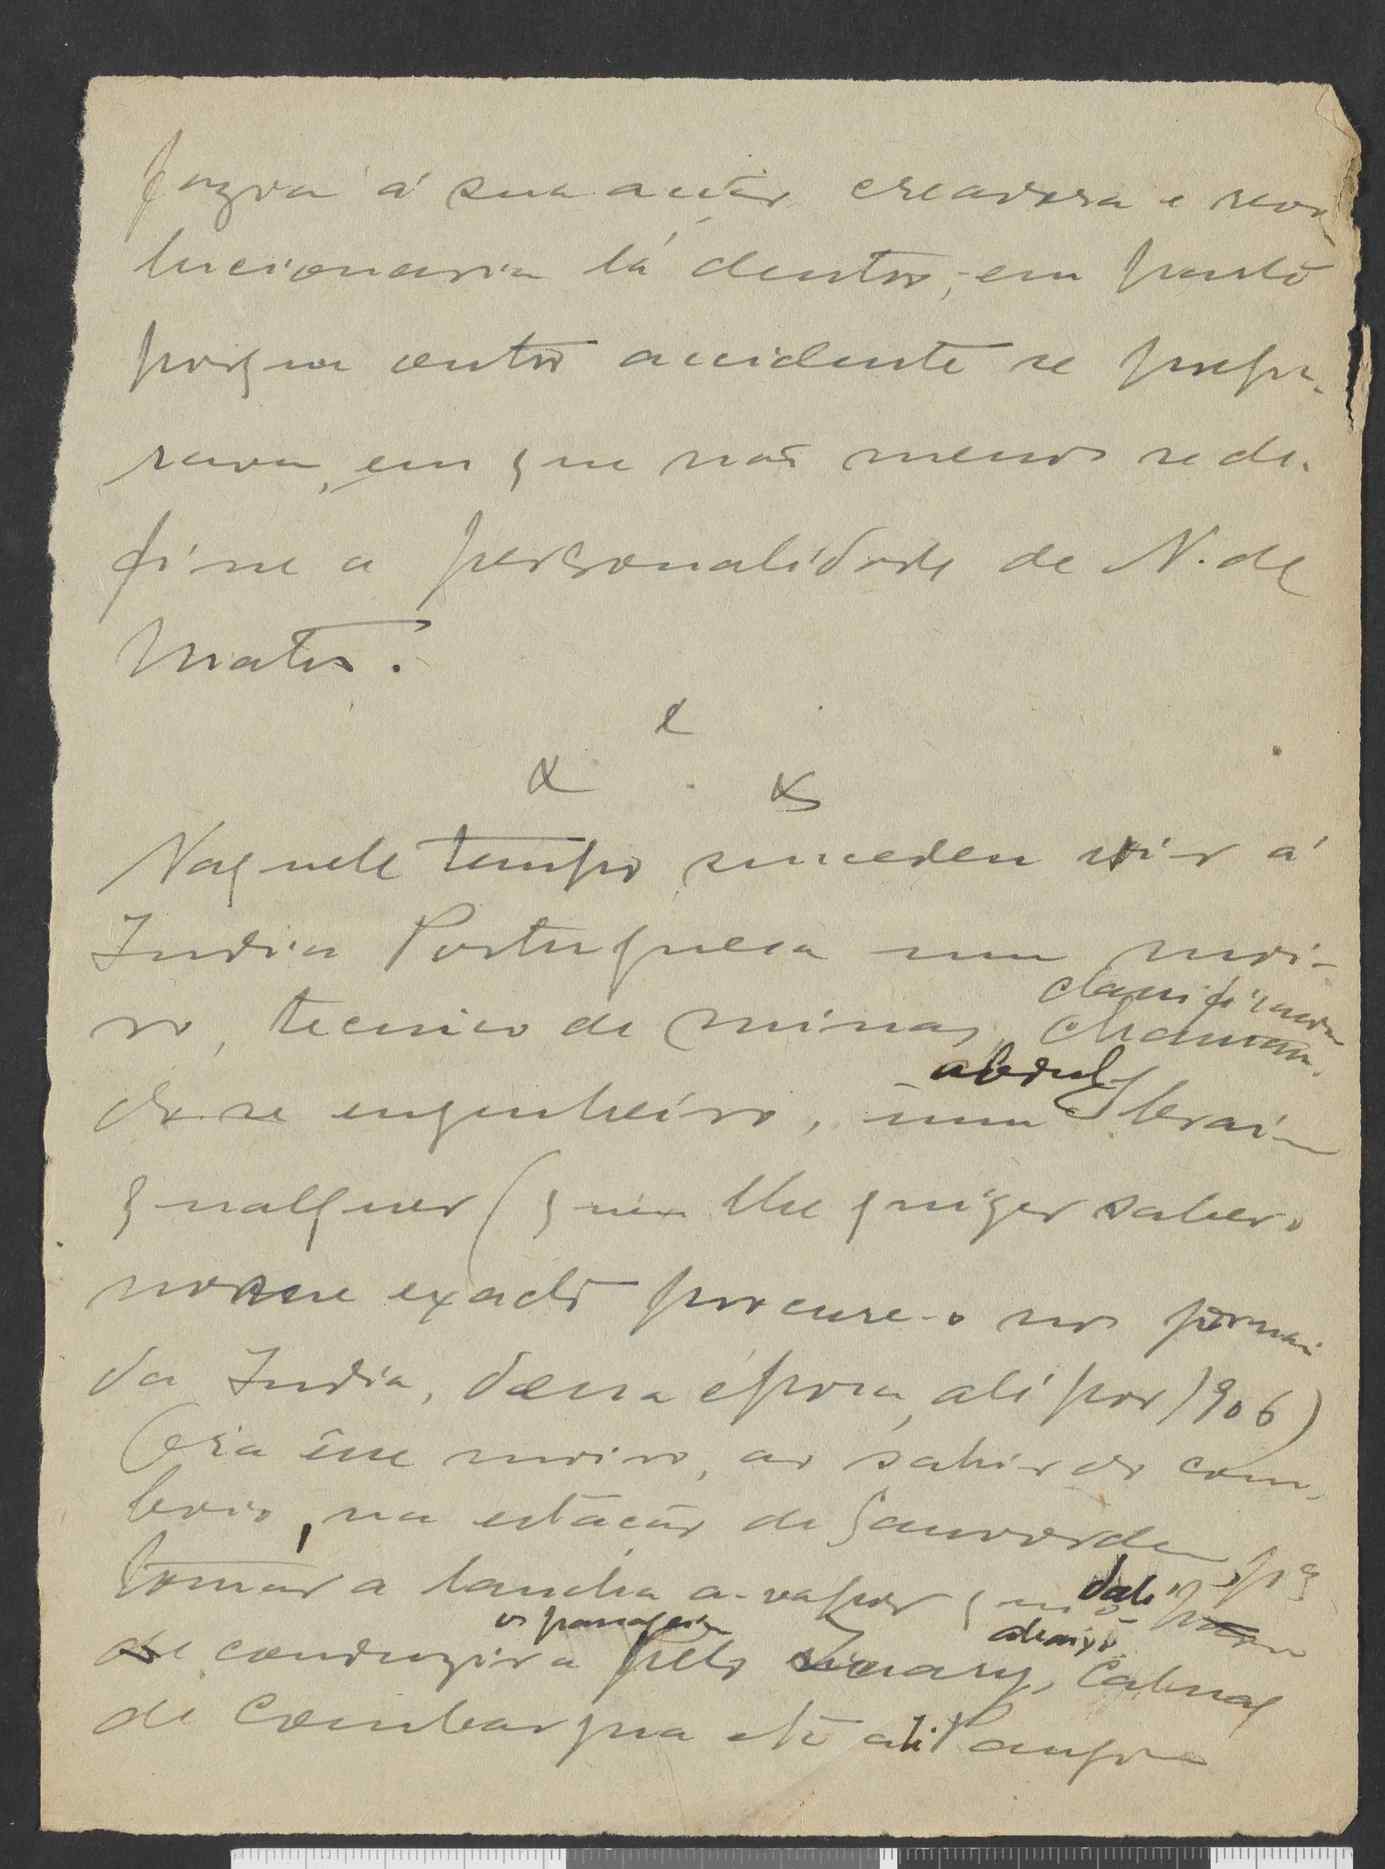 fazia á sua acção creadora e revo-
lucionaria lá dentro, em parte
porque outro accidente se prepa-
rava, em que não menos se de-
fine a personalidade de N. de
Matos.
x
x x
Naquele tempo succedeu vir á
India Portuguesa um moi-
ro, tecnico de minas, classificava
chaman-
do-se engenheiro, um Abdul Ibraim
qualquer (quem lhe quizer saber o
nome exacto procure-o nos jornais
da India, dessa época, ali por 1906)
Ora êsse moiro, ao sahir do com-
boio, na estação de Sanvordem, pª
tomar a lancha a-vapor que dali
os passageiros abaixo
conduzira pelo Zuary, Cabnal
de Combarjua até ali Pangim